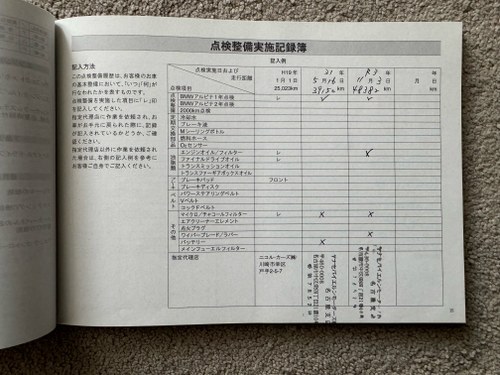 点検整備実施記録簿
記入方法
この点検整備履歴は、お客様のお車
の基本整備において、「いつ」「何」が
行なわれたかを表すものです。
点検整備を実施した項目に「レ」印
を記入してください。
指定代理店に作業を依頼され、お
車がお手元に戻られた際に、記録
が記入されているかどうか、ご確
認ください。
指定代理店以外に作業を依頼され
た場合は、右側の記入例を参考に
お客様ご自身でご記入ください。
記入例
点検実施日および
走行距離
点検項目
H19年
1月1日
25,023km
21年
5月16日
3915km
R3年
11月3日
4838km
年
月 日
km
点検整備
BMWアルピナ1年点検 レ レ レ
BMWアルピナ2年点検
2000km点検
定期交換部品
冷却水
ブレーキ液
Mシーリングボトル
燃料ホース
O₂センサー
油脂類
エンジンオイル/フィルター レ X
ファイナルドライブオイル レ
トランスミッションオイル
トランスファーギアボックスオイル
ブレーキ
ブレーキパッド フロント
ブレーキディスク
ベルト
パワーステアリングベルト
Vベルト
コックドベルト
その他
マイクロ/チャコールフィルター レ X X
エアクリーナーエレメント
点火プラグ
ワイパーブレード/ラバー X
バッテリー X
メインフューエルフィルター
指定代理店
ニコル・カーズ㈱
川崎市幸区
戸手2-5-7